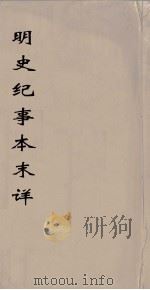 明史纪事本末详
mtoou.info